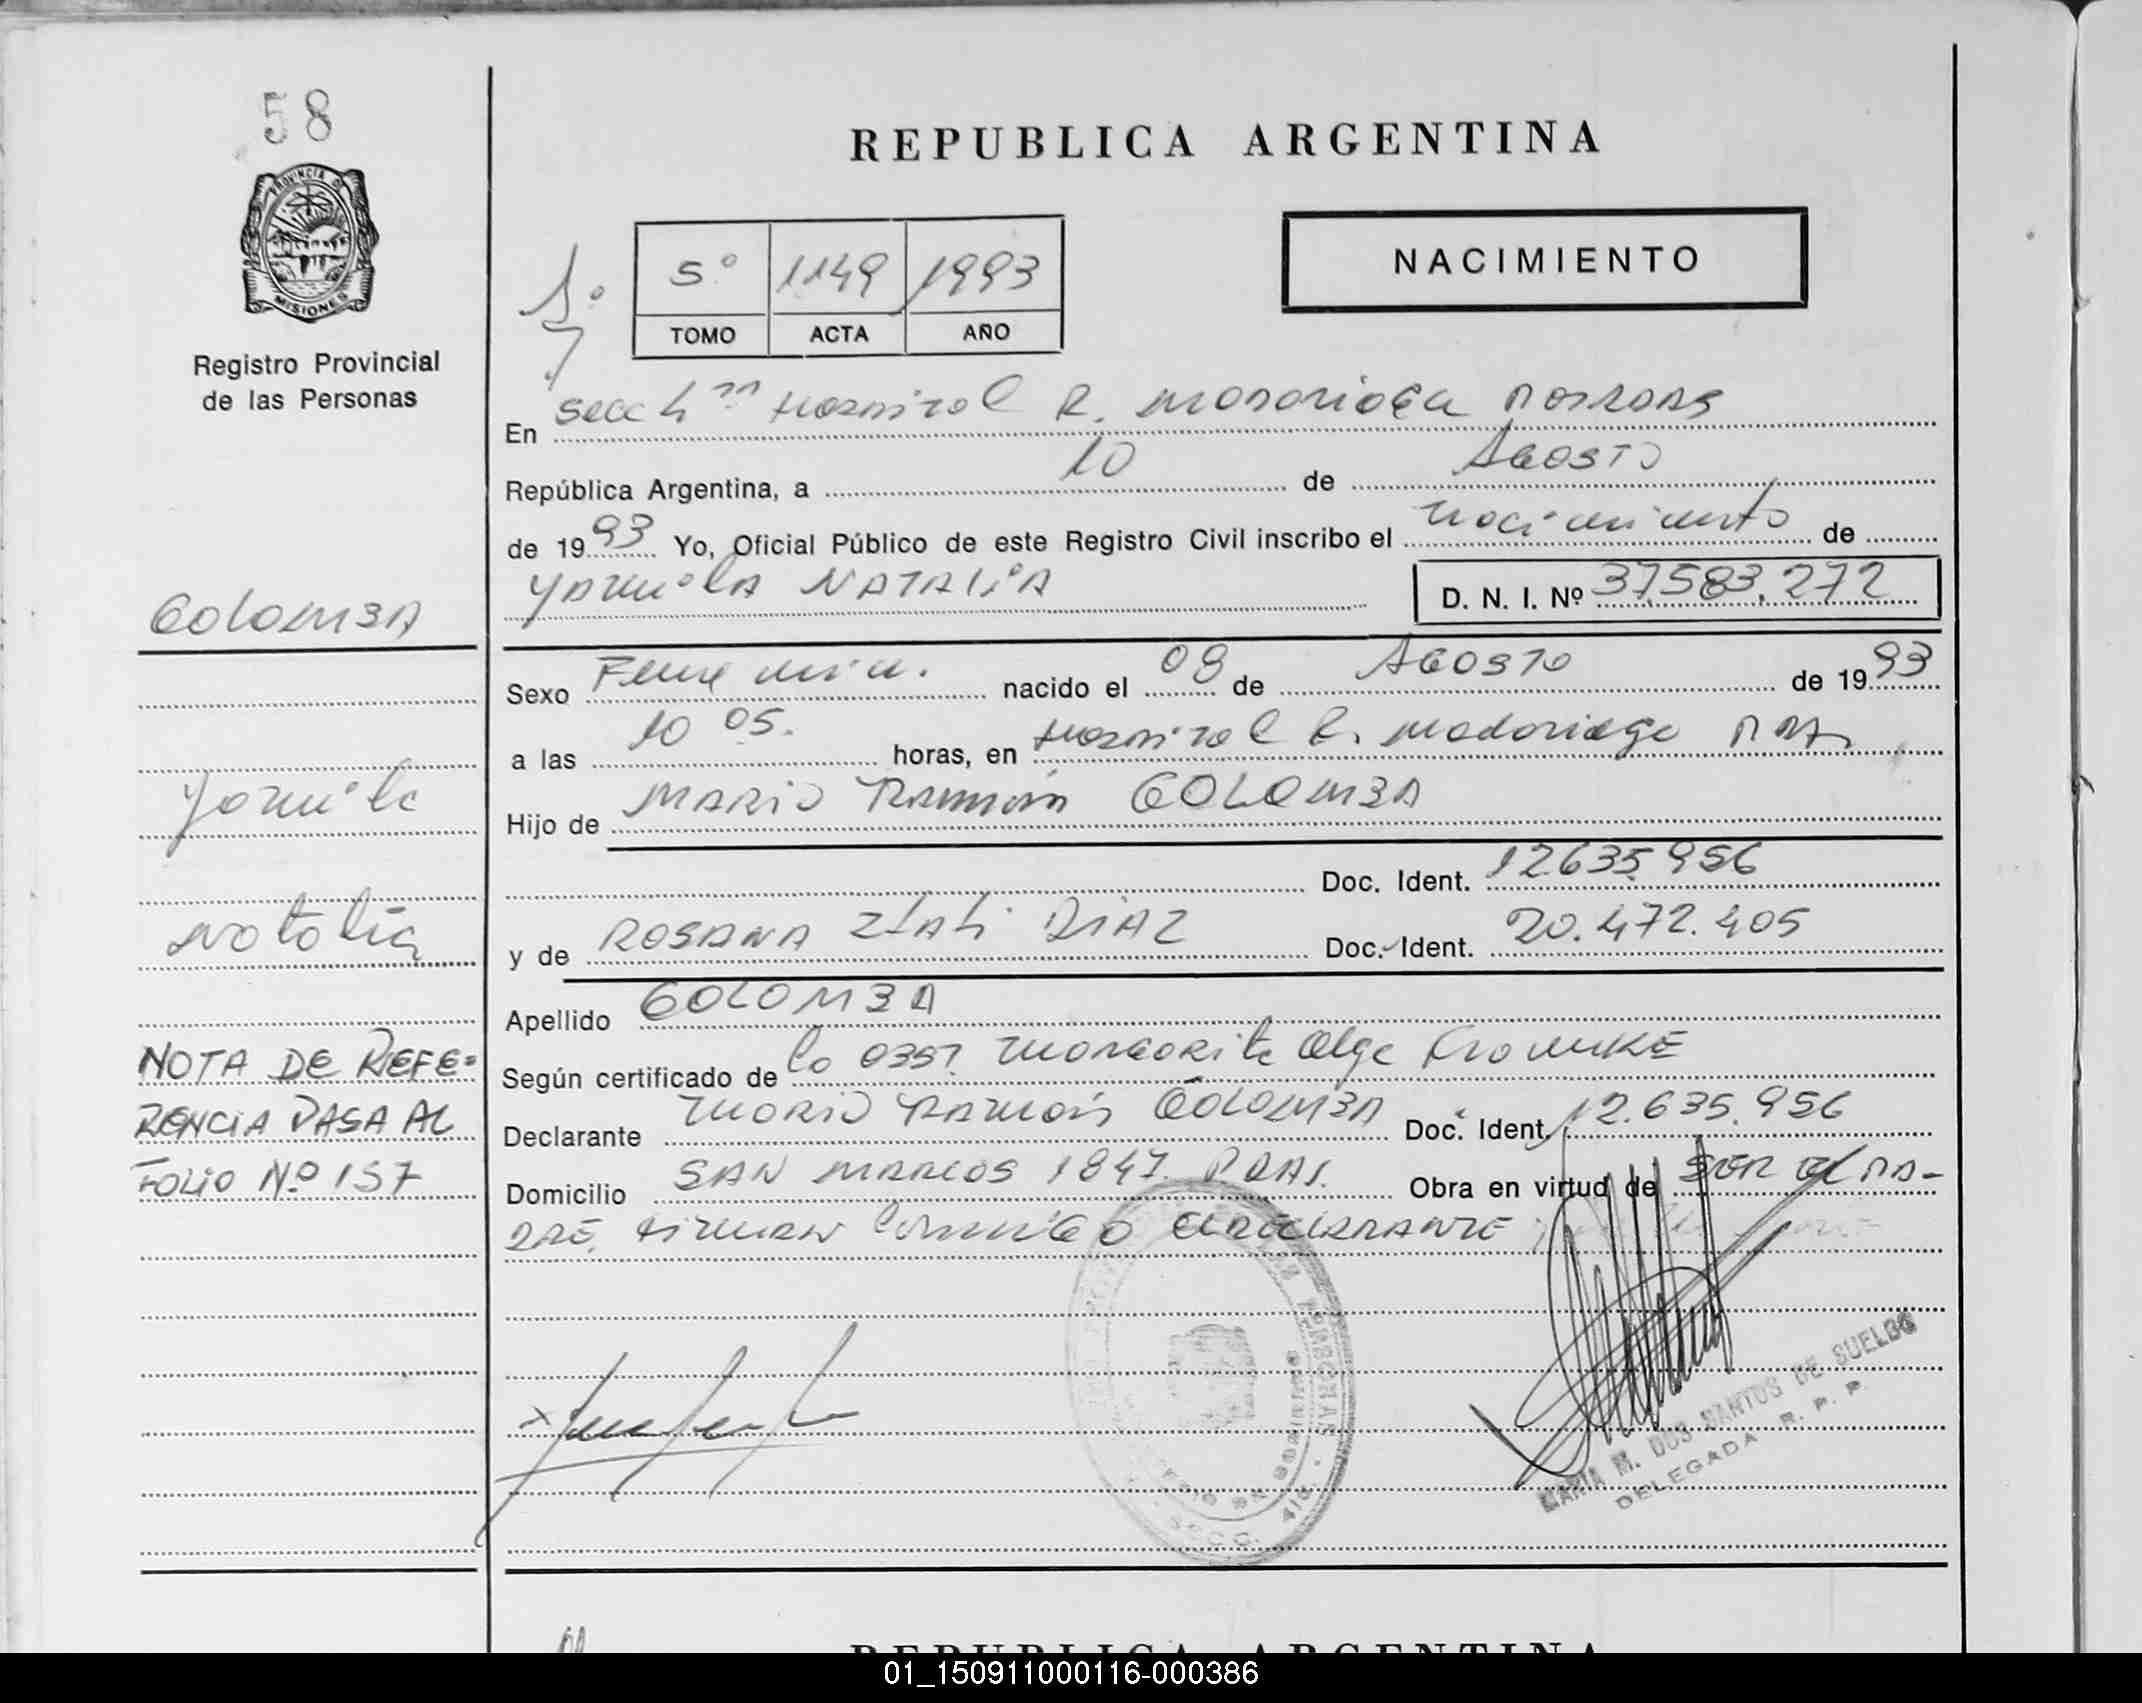 58
PROVINCIA DE
MISIONES
Registro Provincial
de las Personas
REPUBLICA ARGENTINA
1º
5º 1149 1993
TOMO ACTA AÑO
NACIMIENTO
En Secc 4ta Hospital R. Madariaga Posadas
República Argentina, a 10 de Agosto
de 1993 Yo, Oficial Público de este Registro Civil inscribo el nacimiento de
Yamila NATALIA D. N. I. Nº 37.583.272
COLOMBA
Sexo Femenin. nacido el 08 de AGOSTO de 1993
a las 10 05. horas, en Hospital R. Madariaga
Hijo de MARIO RAMON COLOMBA
Yamila
Doc. Ident. 12.635.956
y de ROSANA DIAZ Doc. Ident. 20.472.405
Natalia
Apellido COLOMBA
Según certificado de la Obst. Margarita Olga
Declarante MARIO RAMÓN COLOMBA Doc. Ident. 12.635.956
Domicilio SAN MARCOS 1847. PDAS. Obra en virtud de SER el PA-
DRE. FIRMAN CONMIGO EL DECLARANTE
NOTA DE REFE=
RENCIA PASA AL
FOLIO Nº 157
PERSONAS
MARIA M. DOS SANTOS DE SUELDO
DELEGADA R. P. P.
REPUBLICA ARGENTINA
01_150911000116-000386